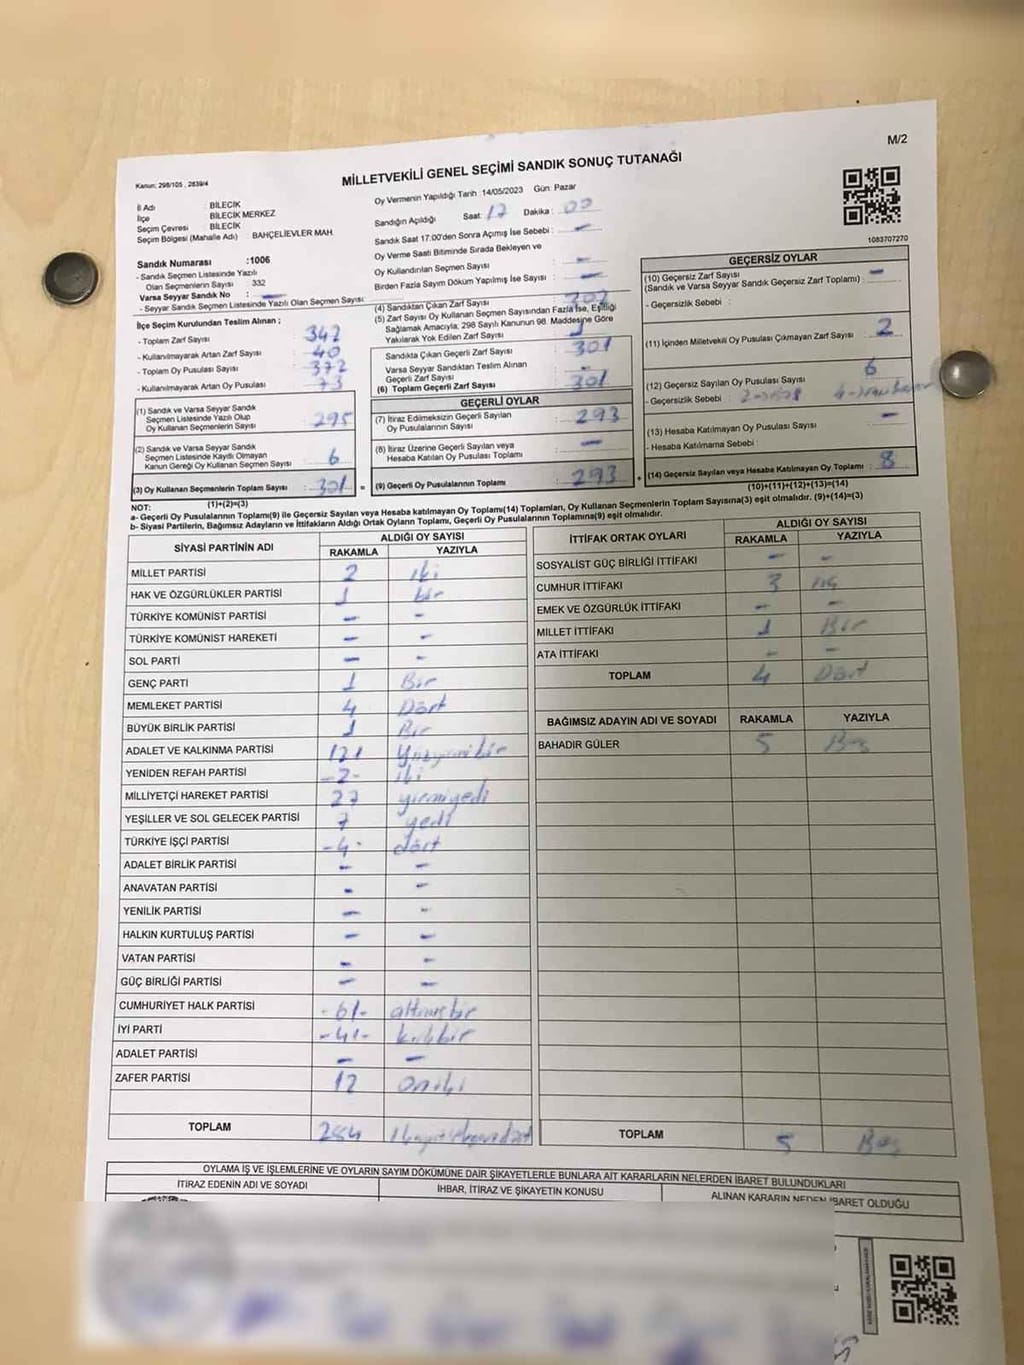 M/2
MİLLETVEKİLİ GENEL SEÇİMİ SANDIK SONUÇ TUTANAĞI
Kanun: 298/105 , 2839/4
İl Adı : BİLECİK
İlçe BİLECİK MERKEZ
Seçim Çevresi : BİLECİK
Seçim Bölgesi (Mahalle Adı) : BAHÇELİEVLER MAH.
Oy Vermenin Yapıldığı Tarih : 14/05/2023 Gün: Pazar
Sandığın Açıldığı Saat: 17 Dakika : 00
Sandık Saat 17:00'den Sonra Açımış İse Sebebi : -
Oy Verme Saati Bitiminde Sırada Bekleyen ve
Oy Kullandırılan Seçmen Sayısı : -
Birden Fazla Sayım Döküm Yapılmış İse Sayısı : -
1083707270
Sandık Numarası :1006
- Sandık Seçmen Listesinde Yazılı
Olan Seçmenlerin Sayısı : 332
Varsa Seyyar Sandık No : -
- Seyyar Sandık Seçmen Listesinde Yazılı Olan Seçmen Sayısı:
İlçe Seçim Kurulundan Teslim Alınan ;
- Toplam Zarf Sayısı : 342
- Kullanılmayarak Artan Zarf Sayısı : 40
- Toplam Oy Pusulası Sayısı : 372
- Kullanılmayarak Artan Oy Pusulası : 73
(1) Sandık ve Varsa Seyyar Sandık
Seçmen Listesinde Yazılı Olup
Oy Kullanan Seçmenlerin Sayısı : 295
(2) Sandık ve Varsa Seyyar Sandık
Seçmen Listesinde Kayıtlı Olmayan
Kanun Gereği Oy Kullanan Seçmen Sayısı : 6
(3) Oy Kullanan Seçmenlerin Toplam Sayısı : 301
(1)+(2)=(3)
(4) Sandıktan Çıkan Zarf Sayısı : 302
(5) Zarf Sayısı Oy Kullanan Seçmen Sayısından Fazla İse, Eşitliği
Sağlamak Amacıyla; 298 Sayılı Kanunun 98. Maddesine Göre
Yakılarak Yok Edilen Zarf Sayısı : 1
Sandıkta Çıkan Geçerli Zarf Sayısı : 301
Varsa Seyyar Sandıktan Teslim Alınan
Geçerli Zarf Sayısı : -
(6) Toplam Geçerli Zarf Sayısı : 301
GEÇERLİ OYLAR
(7) İtiraz Edilmeksizin Geçerli Sayılan
Oy Pusulalarının Sayısı : 293
(8) İtiraz Üzerine Geçerli Sayılan veya
Hesaba Katılan Oy Pusulası Toplamı : -
(9) Geçerli Oy Pusulalarının Toplamı : 293
GEÇERSİZ OYLAR
(10) Geçersiz Zarf Sayısı : -
(Sandık ve Varsa Seyyar Sandık Geçersiz Zarf Toplamı) :
- Geçersizlik Sebebi :
(11) İçinden Milletvekili Oy Pusulası Çıkmayan Zarf Sayısı : 2
(12) Geçersiz Sayılan Oy Pusulası Sayısı : 6
- Geçersizlik Sebebi :
(13) Hesaba Katılmayan Oy Pusulası Sayısı : -
- Hesaba Katılmama Sebebi :
(14) Geçersiz Sayılan veya Hesaba Katılmayan Oy Toplamı : 8
(10)+(11)+(12)+(13)=(14)
NOT:
a- Geçerli Oy Pusulalarının Toplamı(9) ile Geçersiz Sayılan veya Hesaba katılmayan Oy Toplamı(14) Toplamları, Oy Kullanan Seçmenlerin Toplam Sayısına(3) eşit olmalıdır. (9)+(14)=(3)
b- Siyasi Partilerin, Bağımsız Adayların ve İttifakların Aldığı Ortak Oyların Toplamı, Geçerli Oy Pusulalarının Toplamına(9) eşit olmalıdır.
SİYASİ PARTİNİN ADI ALDIĞI OY SAYISI
RAKAMLA YAZIYLA
MİLLET PARTİSİ 2 iki
HAK VE ÖZGÜRLÜKLER PARTİSİ 1 bir
TÜRKİYE KOMÜNİST PARTİSİ - -
TÜRKİYE KOMÜNİST HAREKETİ - -
SOL PARTİ - -
GENÇ PARTİ 1 Bir
MEMLEKET PARTİSİ 4 Dört
BÜYÜK BİRLİK PARTİSİ 1 Bir
ADALET VE KALKINMA PARTİSİ 121 Yüzyirmibir
YENİDEN REFAH PARTİSİ -2- iki
MİLLİYETÇİ HAREKET PARTİSİ 27 yirmiyedi
YEŞİLLER VE SOL GELECEK PARTİSİ 7 yedi
TÜRKİYE İŞÇİ PARTİSİ -4- dört
ADALET BİRLİK PARTİSİ - -
ANAVATAN PARTİSİ - -
YENİLİK PARTİSİ - -
HALKIN KURTULUŞ PARTİSİ - -
VATAN PARTİSİ - -
GÜÇ BİRLİĞİ PARTİSİ - -
CUMHURİYET HALK PARTİSİ -61- altmışbir
İYİ PARTİ -41- kırkbir
ADALET PARTİSİ - -
ZAFER PARTİSİ 12 oniki
TOPLAM 284 ikiyüzseksendört
İTTİFAK ORTAK OYLARI ALDIĞI OY SAYISI
RAKAMLA YAZIYLA
SOSYALİST GÜÇ BİRLİĞİ İTTİFAKI - -
CUMHUR İTTİFAKI 3 üç
EMEK VE ÖZGÜRLÜK İTTİFAKI - -
MİLLET İTTİFAKI 1 Bir
ATA İTTİFAKI - -
TOPLAM 4 Dört
BAĞIMSIZ ADAYIN ADI VE SOYADI RAKAMLA YAZIYLA
BAHADIR GÜLER 5 Beş
TOPLAM 5 Beş
OYLAMA İŞ VE İŞLEMLERİNE VE OYLARIN SAYIM DÖKÜMÜNE DAİR ŞİKAYETLERLE BUNLARA AİT KARARLARIN NELERDEN İBARET BULUNDUKLARI
İTİRAZ EDENİN ADI VE SOYADI İHBAR, İTİRAZ VE ŞİKAYETİN KONUSU ALINAN KARARIN NEDEN İBARET OLDUĞU